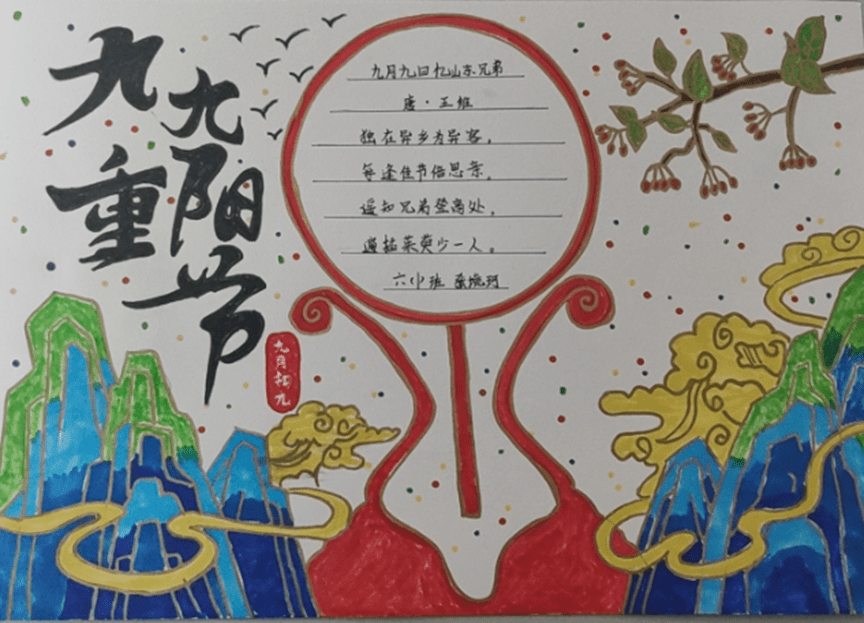 九九
重阳
节
九月初九
九月九日忆山东兄弟
唐·王维
独在异乡为异客,
每逢佳节倍思亲,
遥知兄弟登高处,
遍插茱萸少一人。
六(1)班